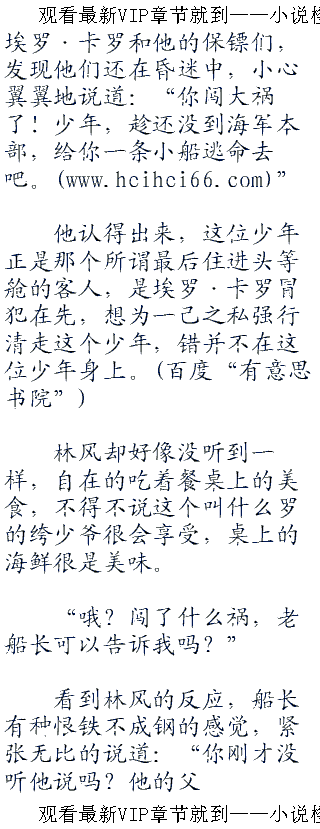 观看最新VIP章节就到——小说检
埃罗·卡罗和他的保镖们，
发现他们还在昏迷中，小心
翼翼地说道：“你闯大祸
了！少年，趁还没到海军本
部，给你一条小船逃命去
吧。(www.hcihci66.com)”
他认得出来，这位少年
正是那个所谓最后住进头等
舱的客人，是埃罗·卡罗冒
犯在先，想为一己之私强行
清走这个少年，错并不在这
位少年身上。(百度“有意思
书院”)
林风却好像没听到一
样，自在的吃着餐桌上的美
食，不得不说这个叫什么罗
的绔少爷很会享受，桌上的
海鲜很是美味。
“哦？闯了什么祸，老
船长可以告诉我吗？”
看到林风的反应，船长
有种恨铁不成钢的感觉，紧
张无比的说道：“你刚才没
听他说吗？他的父
观看最新VIP章节就到——小说检